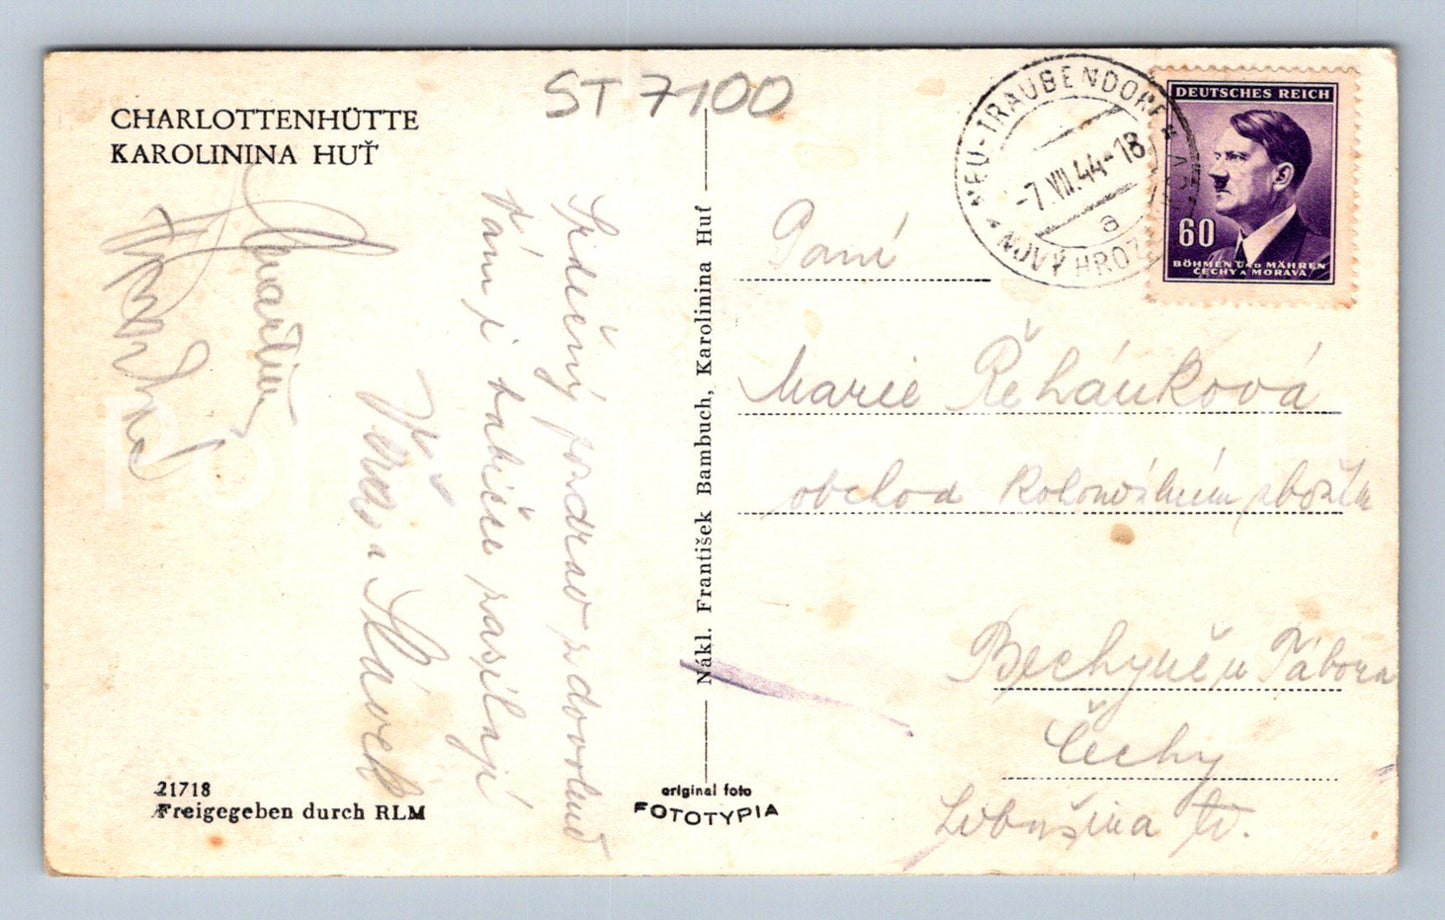 CHARLOTTENHÜTTE
KAROLININA HUŤ
ST 7100
Srdečný pozdrav z dovolené
Vám i babičce zasílají
Věra a Slávek
21718
Freigegeben durch RLM
Nákl. František Bambuch, Karolinina Huť
original foto
FOTOTYPIA
NEU-TRAUBENDORF
-7.VII.44-18
a
NOVÝ HROZ
DEUTSCHES REICH
60
BÖHMEN UND MÄHREN
ČECHY A MORAVA
Paní
Marie Řehánková
obchod koloniálním zbožím
Bechyně u Tábora
Čechy
Libušina tř.